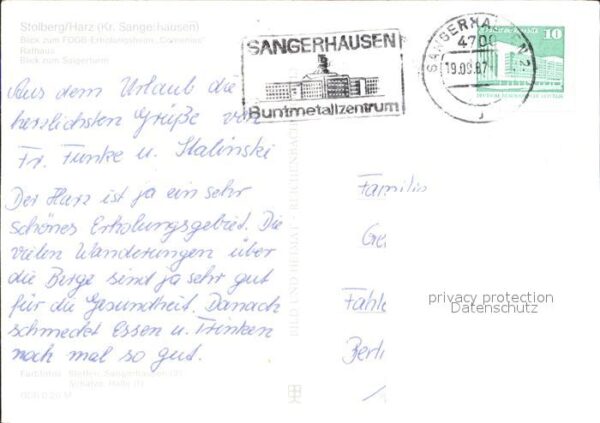 Stolberg/Harz (Kr. Sangerhausen)
Blick zum FDGB-Erholungsheim „Comenius"
Rathaus
Blick zum Saigerturm
SANGERHAUSEN
Buntmetallzentrum
SANGERHAUSEN 2
4700
19.09.87
10
Aus dem Urlaub die
herzlichsten Grüße von
Fr. Funke u. Stalinski
Der Harz ist ja ein sehr
schönes Erholungsgebiet. Die
vielen Wanderungen über
die Berge sind ja sehr gut
für die Gesundheit. Danach
schmeckt Essen u. Trinken
noch mal so gut.
BILD UND HEIMAT REICHENBACH
Familie
Ge
Fahle
Berli
privacy protection
Datenschutz